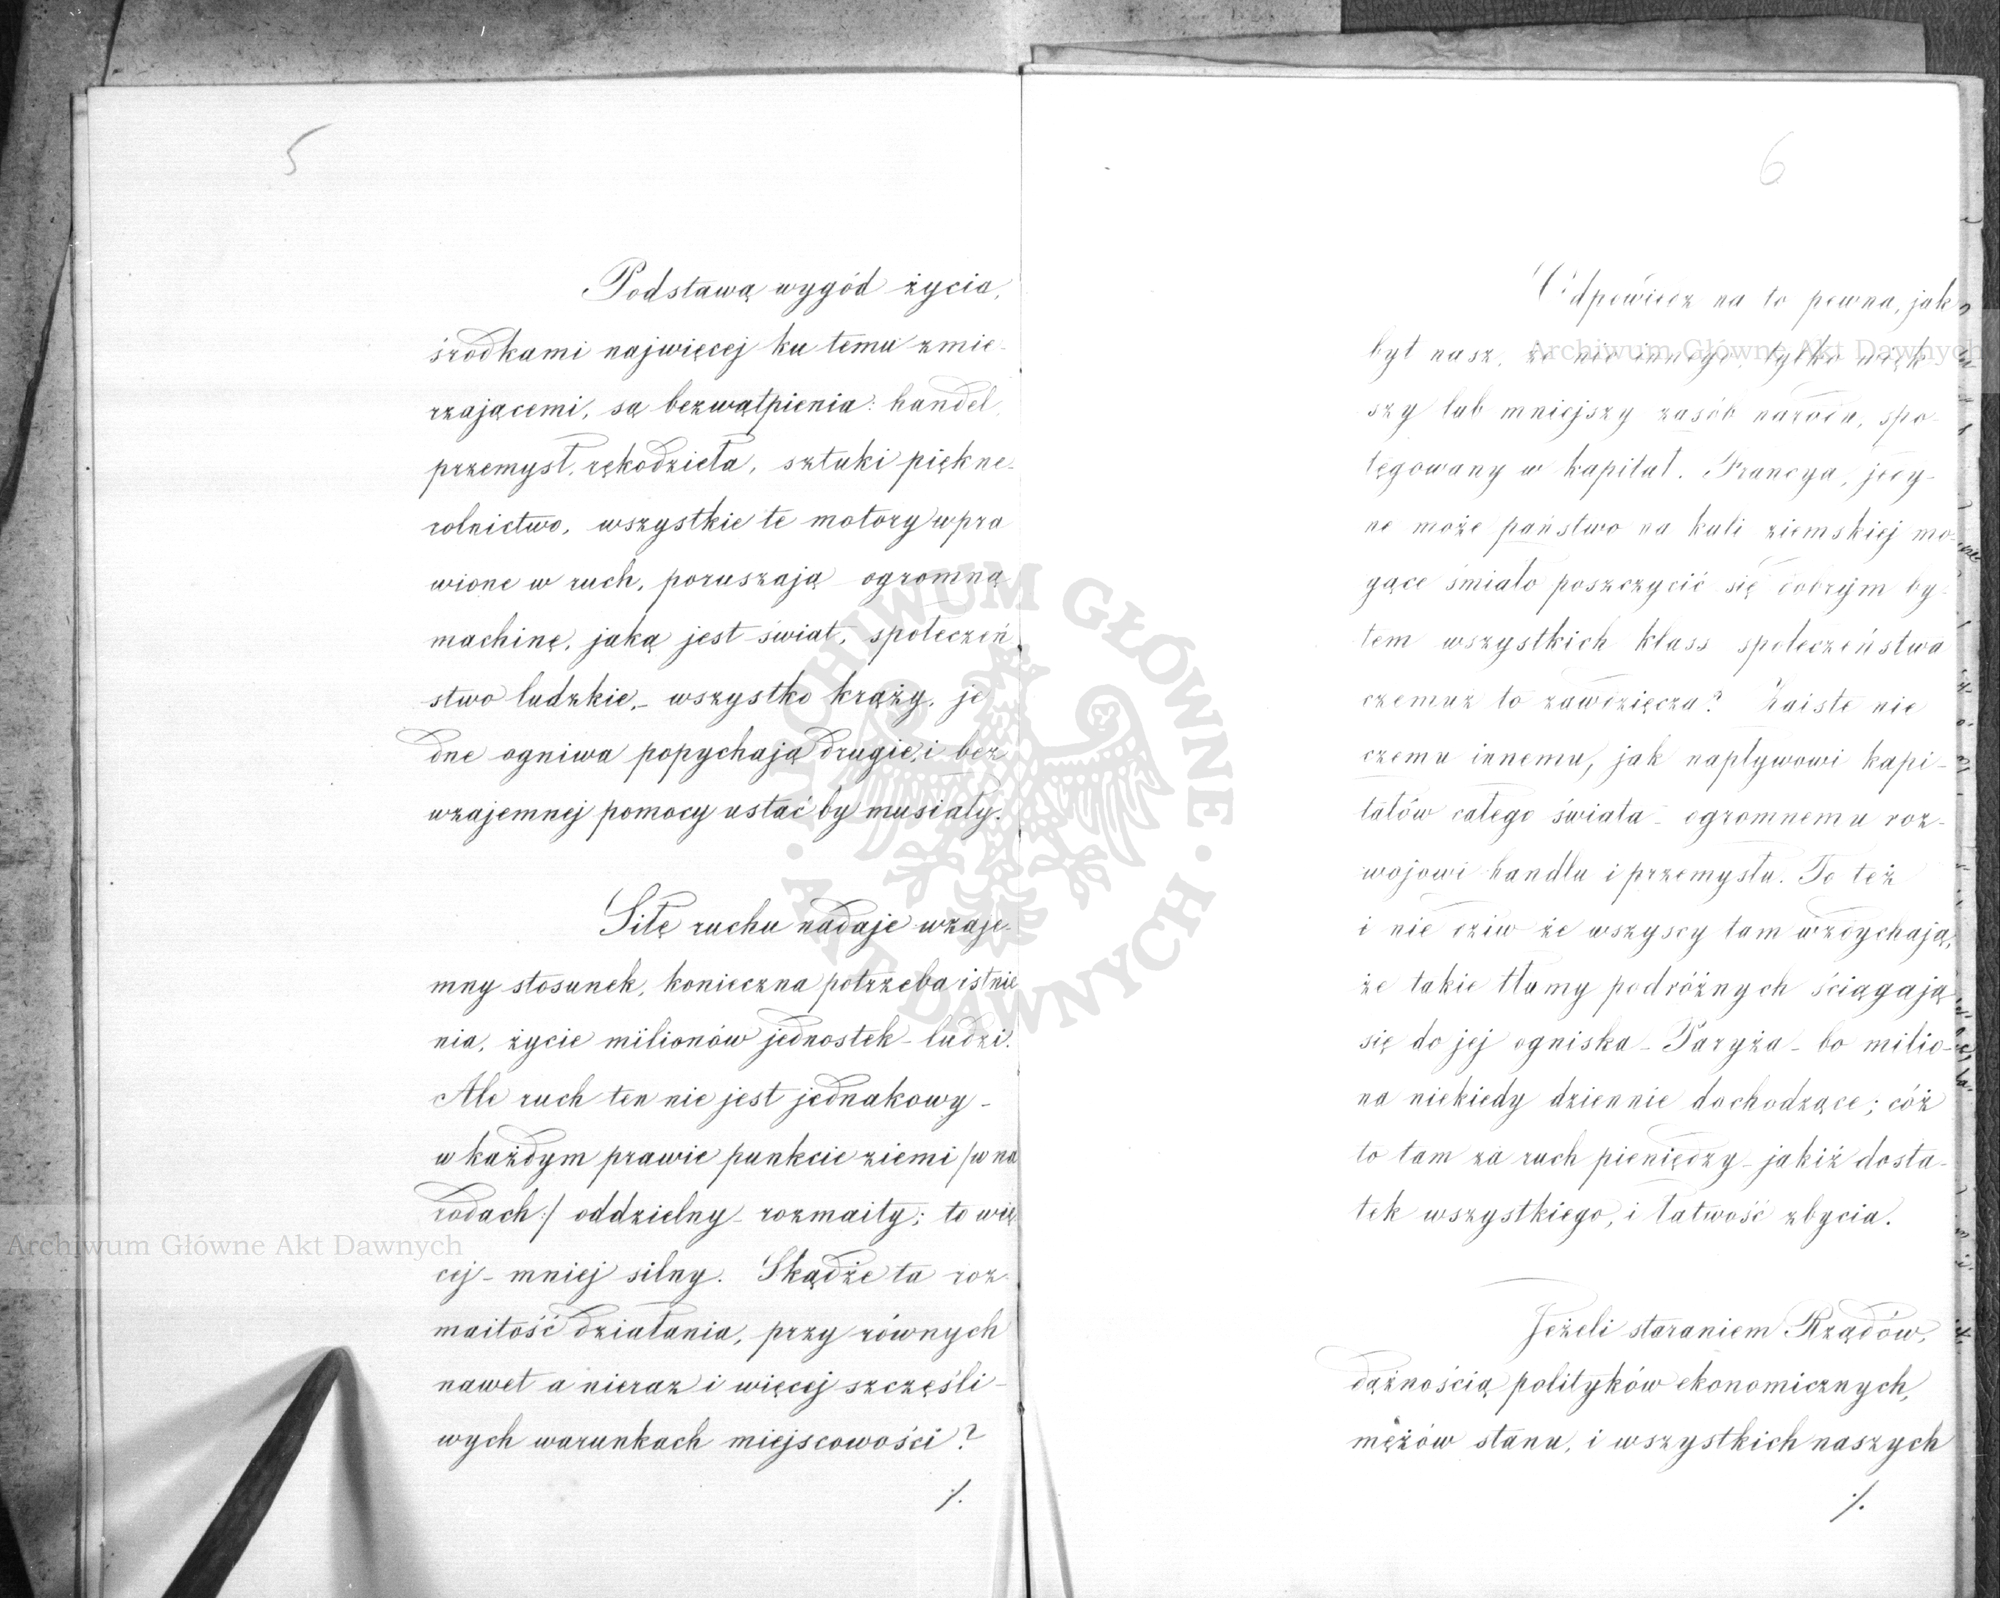 5
Podstawą wygód życia,
środkami najwięcej ku temu zmie-
rzającemi, są bezwątpienia: handel,
przemysł, rękodzieła, sztuki piękne-
rolnictwo, wszystkie te motory wpra
wione w ruch, poruszają ogromną
machinę, jaką jest świat, społeczeń
stwo ludzkie,- wszystko krąży, je
dne ogniwa popychają drugie, i bez
wzajemnej pomocy ustać by musiały.
Siłę ruchu nadaje wzaje-
mny stosunek, konieczna potrzeba istnie
nia, życie milionów jednostek - ludzi.
Ale ruch ten nie jest jednakowy -
w każdym prawie punkcie ziemi /w na
rodach:/ oddzielny - rozmaity; to wię
cej - mniej silny. Skądże ta roz-
maitość działania, przy równych
nawet a nieraz i więcej szczęśli-
wych warunkach miejscowości?
./.
6
Odpowiecz na to pewna, jak
byt nasz, że nic innego, tylko więk
szy lub mniejszy zasób narodu, spo-
tęgowany w kapitał. Francya, jedy-
ne może państwo na kuli ziemskiej mo-
gące śmiało poszczycić się dobrym by-
tem wszystkich klass społeczeństwa
czemuż to zawdzięcza? Zaiste nie
czemu innemu, jak napływowi kapi-
tałów całego świata - ogromnemu roz-
wojowi handlu i przemysłu. To też
i nie dziw że wszyscy tam wzdychają,
że takie tłumy podróżnych ściągają
się do jej ogniska - Paryża - bo milio-
na niekiedy dziennie dochodzące; cóż
to tam za ruch pieniędzy - jakiż dosta-
tek wszystkiego, i łatwość zbycia.
Jeżeli staraniem Rządów,
dążnością polityków ekonomicznych,
mężów stanu, i wszystkich naszych
./.
Archiwum Główne Akt Dawnych
Archiwum Główne Akt Dawnych
ARCHIWUM GŁÓWNE · AKT DAWNYCH ·